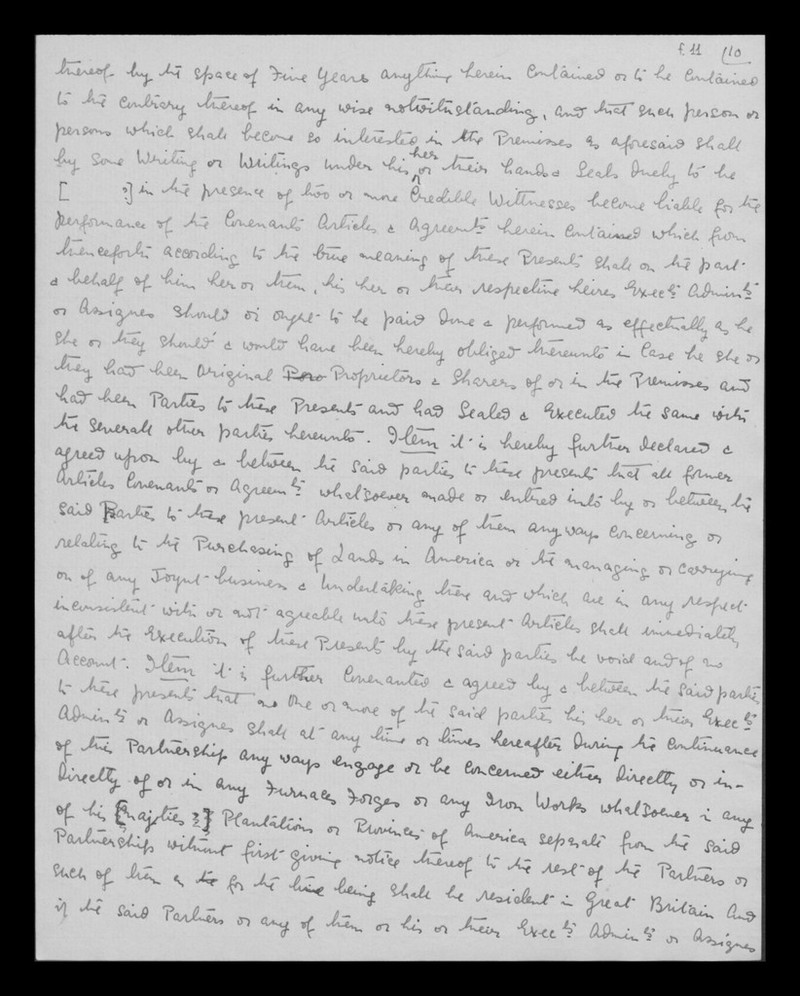 f. 11 110
thereof by the space of Five Years anything herein Contained or to be Contained
to the Contrary thereof in any wise notwithstanding, and that such person or
persons which shall become so interested in the Premisses as aforesaid shall
by some Writing or Writings under his her or their hands & Seals duely to be
[ ?] in the presence of two or more Credible Wittnesses become liable for the
performance of the Covenants Articles & Agreemts herein Contained which from
thenceforth according to the true meaning of these Presents shall on the part
& behalf of him her or them, his her or their respective heires Exects Admints
or Assignes should or ought to be paid done & performed as effectually as he
she or they should & would have been hereby obliged thereunto in Case he she or
they had been Original Proprietors & Sharers of or in the Premisses and
had been Parties to these Presents and had Sealed & Executed the same with
the severall other parties hereunto. Item it is hereby further declared &
agreed upon by & between the said parties to these presents that all former
Articles Covenants or Agreemts whatsoever made or entred into by or between the
said Parties to these present Articles or any of them anyways Concerning or
relating to the Purchasing of Lands in America or the managing or Carrying
on of any Joynt business & Undertaking there and which are in any respect
inconsistent with or not agreable unto these present Articles shall immediately
after the Execution of these Presents by the said parties be void and of no
Account. Item it is further Covenanted & agreed by & between the said parties
to these presents that no One or more of the said parties his her or their Exects
Admints or Assignes shall at any time or times hereafter during the Continuance
of this Partnership any ways engage or be Concerned either directly or in-
directly of or in any Furnaces Forges or any Iron Works whatsoever in any
of his [Majties ?] Plantations or Provinces of America separate from the said
Partnership without first giving notice thereof to the rest of the Partners or
such of them as for the time being shall be resident in Great Britain And
if the said Partners or any of them or his or their Exects Admints or Assignes